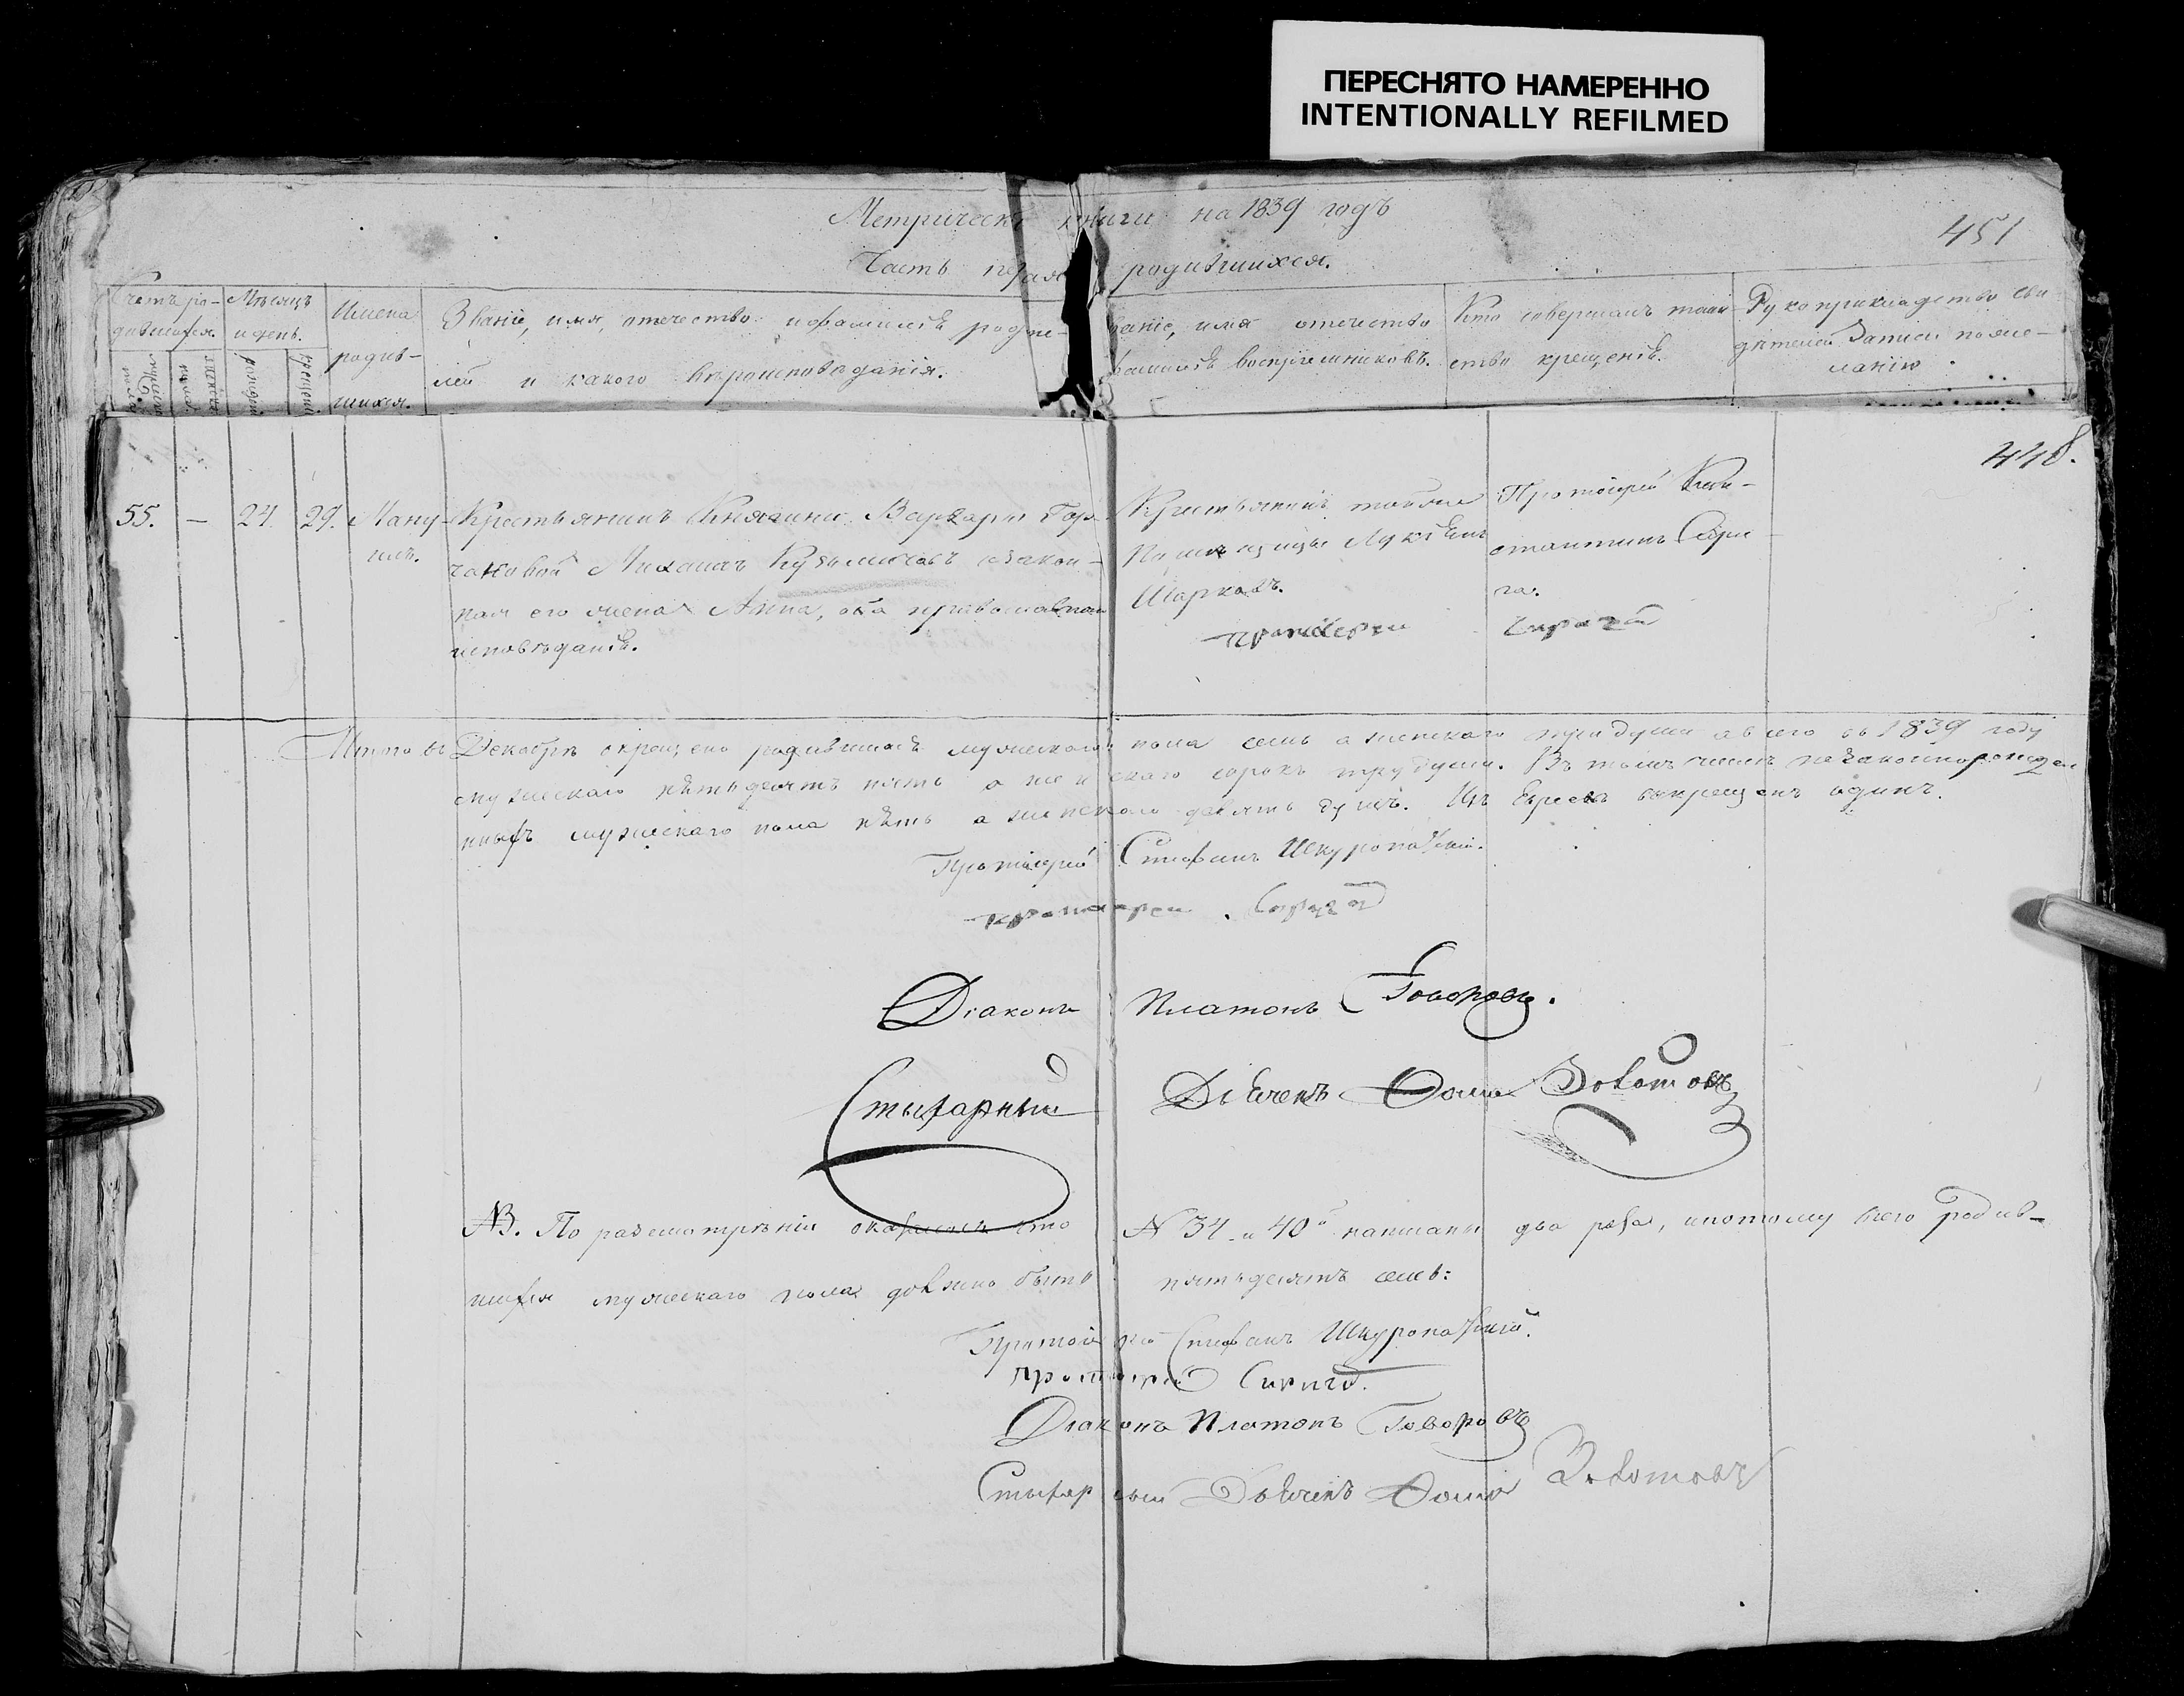 ПЕРЕСНЯТО НАМЕРЕННО
INTENTIONALLY REFILMED
Метрическ книги на 1839 годъ
451
Часть пе рая родившихся.
Счетъ ро-
дившихся.
Мѣсяцъ
и день.
Имена
родив-
шихся.
Званіе, имя, отечество и фамиліѣ родите-
лей и какого вѣроисповѣданія.
ваніе, имя отечество
фамиліѣ воспріемниковъ.
Кто совершалъ таин
ство крещеніѣ.
Рукоприкладство сви
дѣтелей записи по же-
ланію
мужеска
пола
женска
пола
рожден
крещені
448.
55. — 24. 29. Ману-
илъ.
Крестьянинъ Княгини Варвары Гор-
чаковой Михаилъ Кузьмичовъ закон-
ная его жена Анна, оба православнаго
исповѣданіѣ.
Крестьянинъ тойже
Помѣщицы Лукіанъ
Шарковъ.
Протоіерей Кон-
стантинъ Сири
га.
протоіереи Сирига
Итого въ Декабрѣ окрещено родившихся мужескаго пола семь а женскаго три души а всего въ 1839 году
мужескаго пятьдесятъ пять а женскаго сорокъ три души. Въ томъ числѣ незаконнорожден
ныхъ мужескаго пола пять а женскаго девять душъ. Изъ Евреевъ окрещенъ одинъ.
Протоіерей Стефанъ Шкуропатскій.
протоиереи Сирига
Діаконъ Платонъ Говоровъ.
Стихарный Дьячекъ Фома Золотовъ
NB. По разсмотрѣніи оказалось что N 34 и 40й написаны два раза, и потому всего родив-
шихся мужескаго пола должно быть пятьдесятъ семь:
Протоіерей Стефанъ Шкуропатскій.
протоиереи Сирига.
Діаконъ Платонъ Говоровъ
Стихарный Дьячекъ Фома Золотовъ